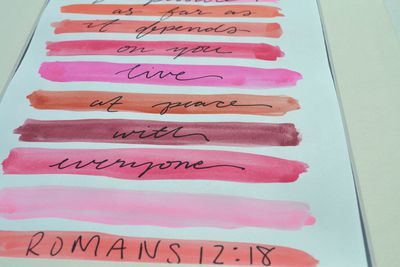 as far as
it depends
on you
live
at peace
with
everyone
ROMANS 12:18